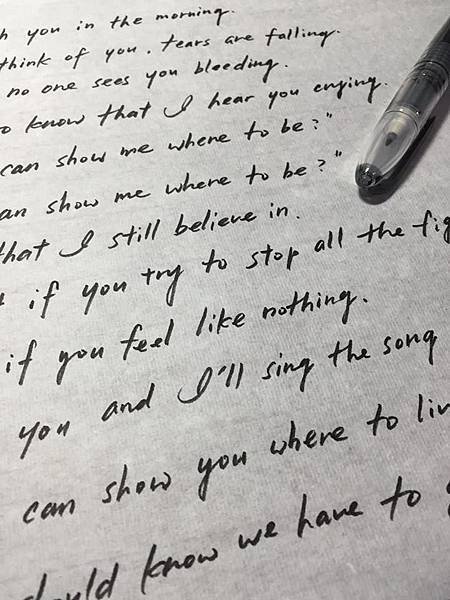 you in the morning.
think of you. tears are falling.
no one sees you bleeding.
to know that I hear you crying.
can show me where to be?"
an show me where to be?"
that I still believe in.
if you try to stop all the fig
if you feel like nothing.
you and I'll sing the song
can show you where to liv
should know we have to